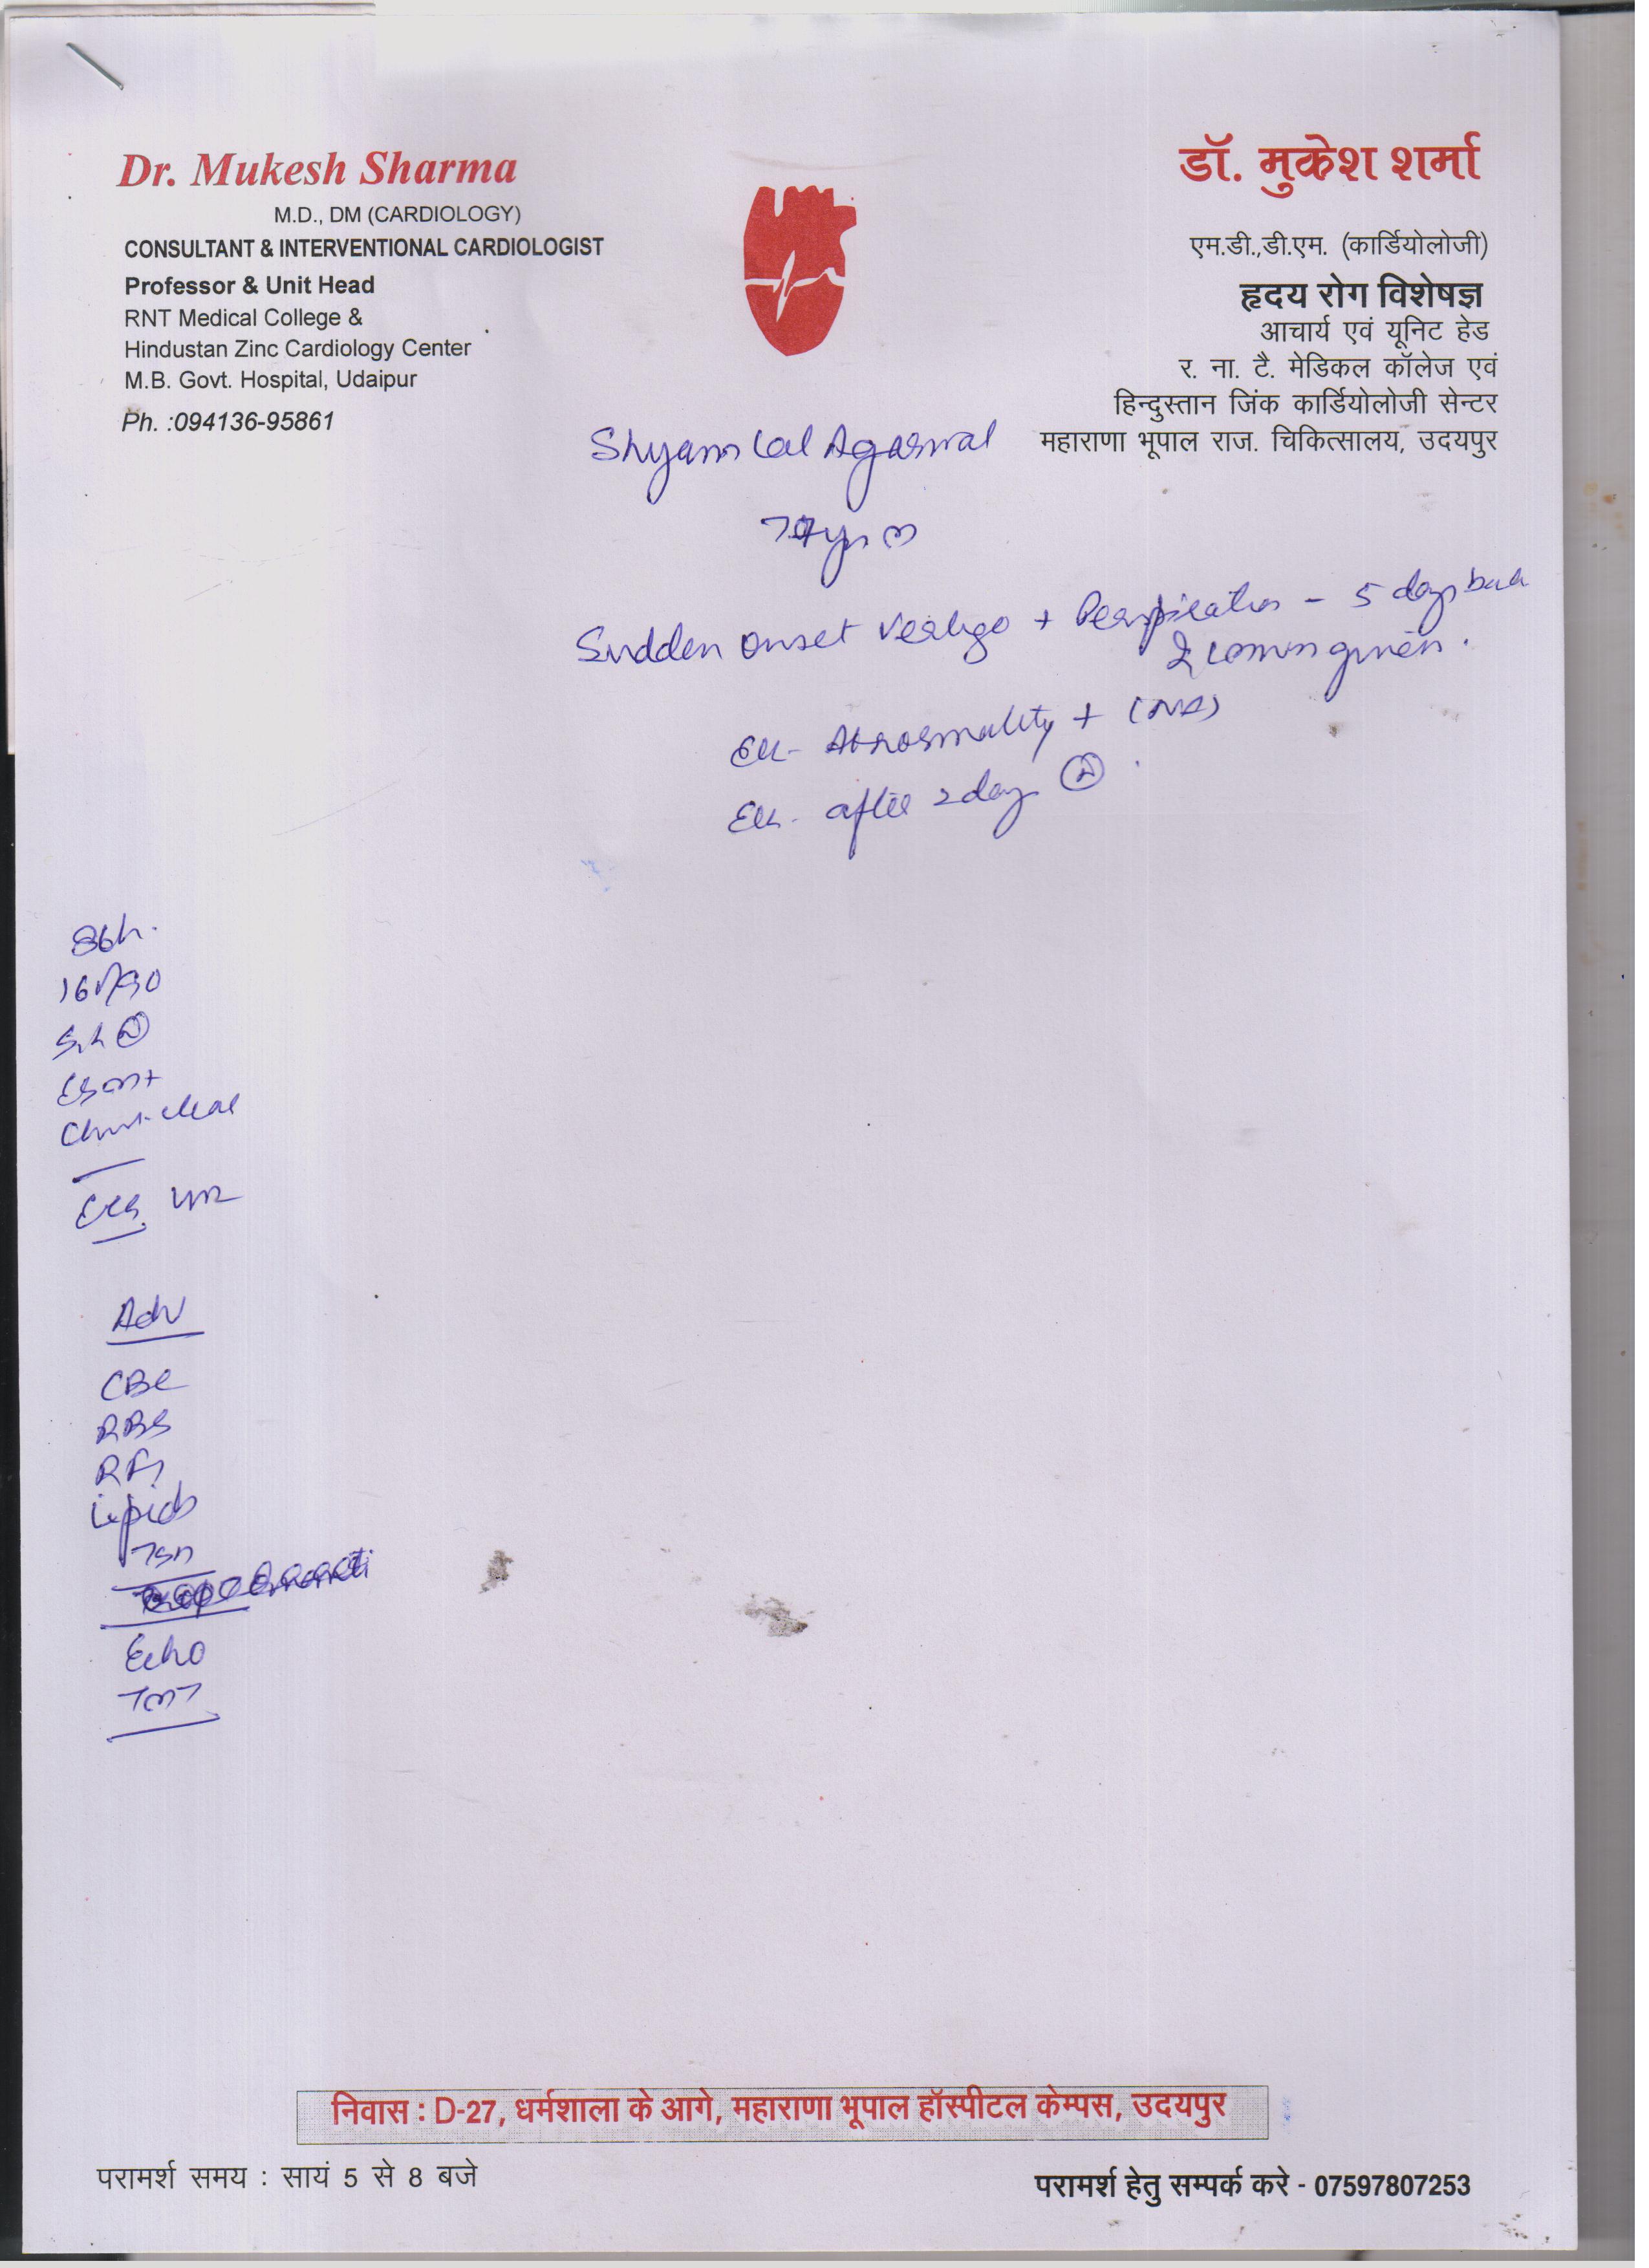 Dr. Mukesh Sharma
M.D., DM (CARDIOLOGY)
CONSULTANT & INTERVENTIONAL CARDIOLOGIST
Professor & Unit Head
RNT Medical College &
Hindustan Zinc Cardiology Center
M.B. Govt. Hospital, Udaipur
Ph. :094136-95861
डॉ. मुकेश शर्मा
एम.डी.,डी.एम. (कार्डियोलोजी)
हृदय रोग विशेषज्ञ
आचार्य एवं यूनिट हेड
र. ना. टै. मेडिकल कॉलेज एवं
हिन्दुस्तान जिंक कार्डियोलोजी सेन्टर
महाराणा भूपाल राज. चिकित्सालय, उदयपुर
Shyam Lal Agarwal
Sudden onset vertigo + Perspiration - 5 days back
Abnormality + (NA)
after 2 day (N)
Chest-clear
Adv
CBC
RBS
RFT
Lipids
Echo
TMT
निवास : D-27, धर्मशाला के आगे, महाराणा भूपाल हॉस्पीटल केम्पस, उदयपुर
परामर्श समय : सायं 5 से 8 बजे
परामर्श हेतु सम्पर्क करे - 07597807253